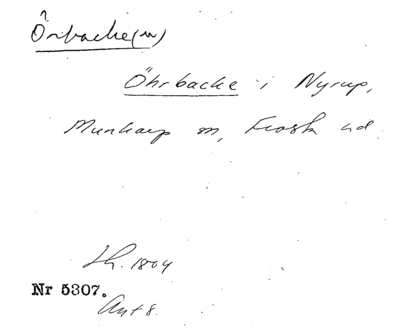 Örbacke(n)
Öhrbacke i Nyrup,
Munkarp sn, Frosta hd
Lh. 1804
Nr 5307.
Ant 8.